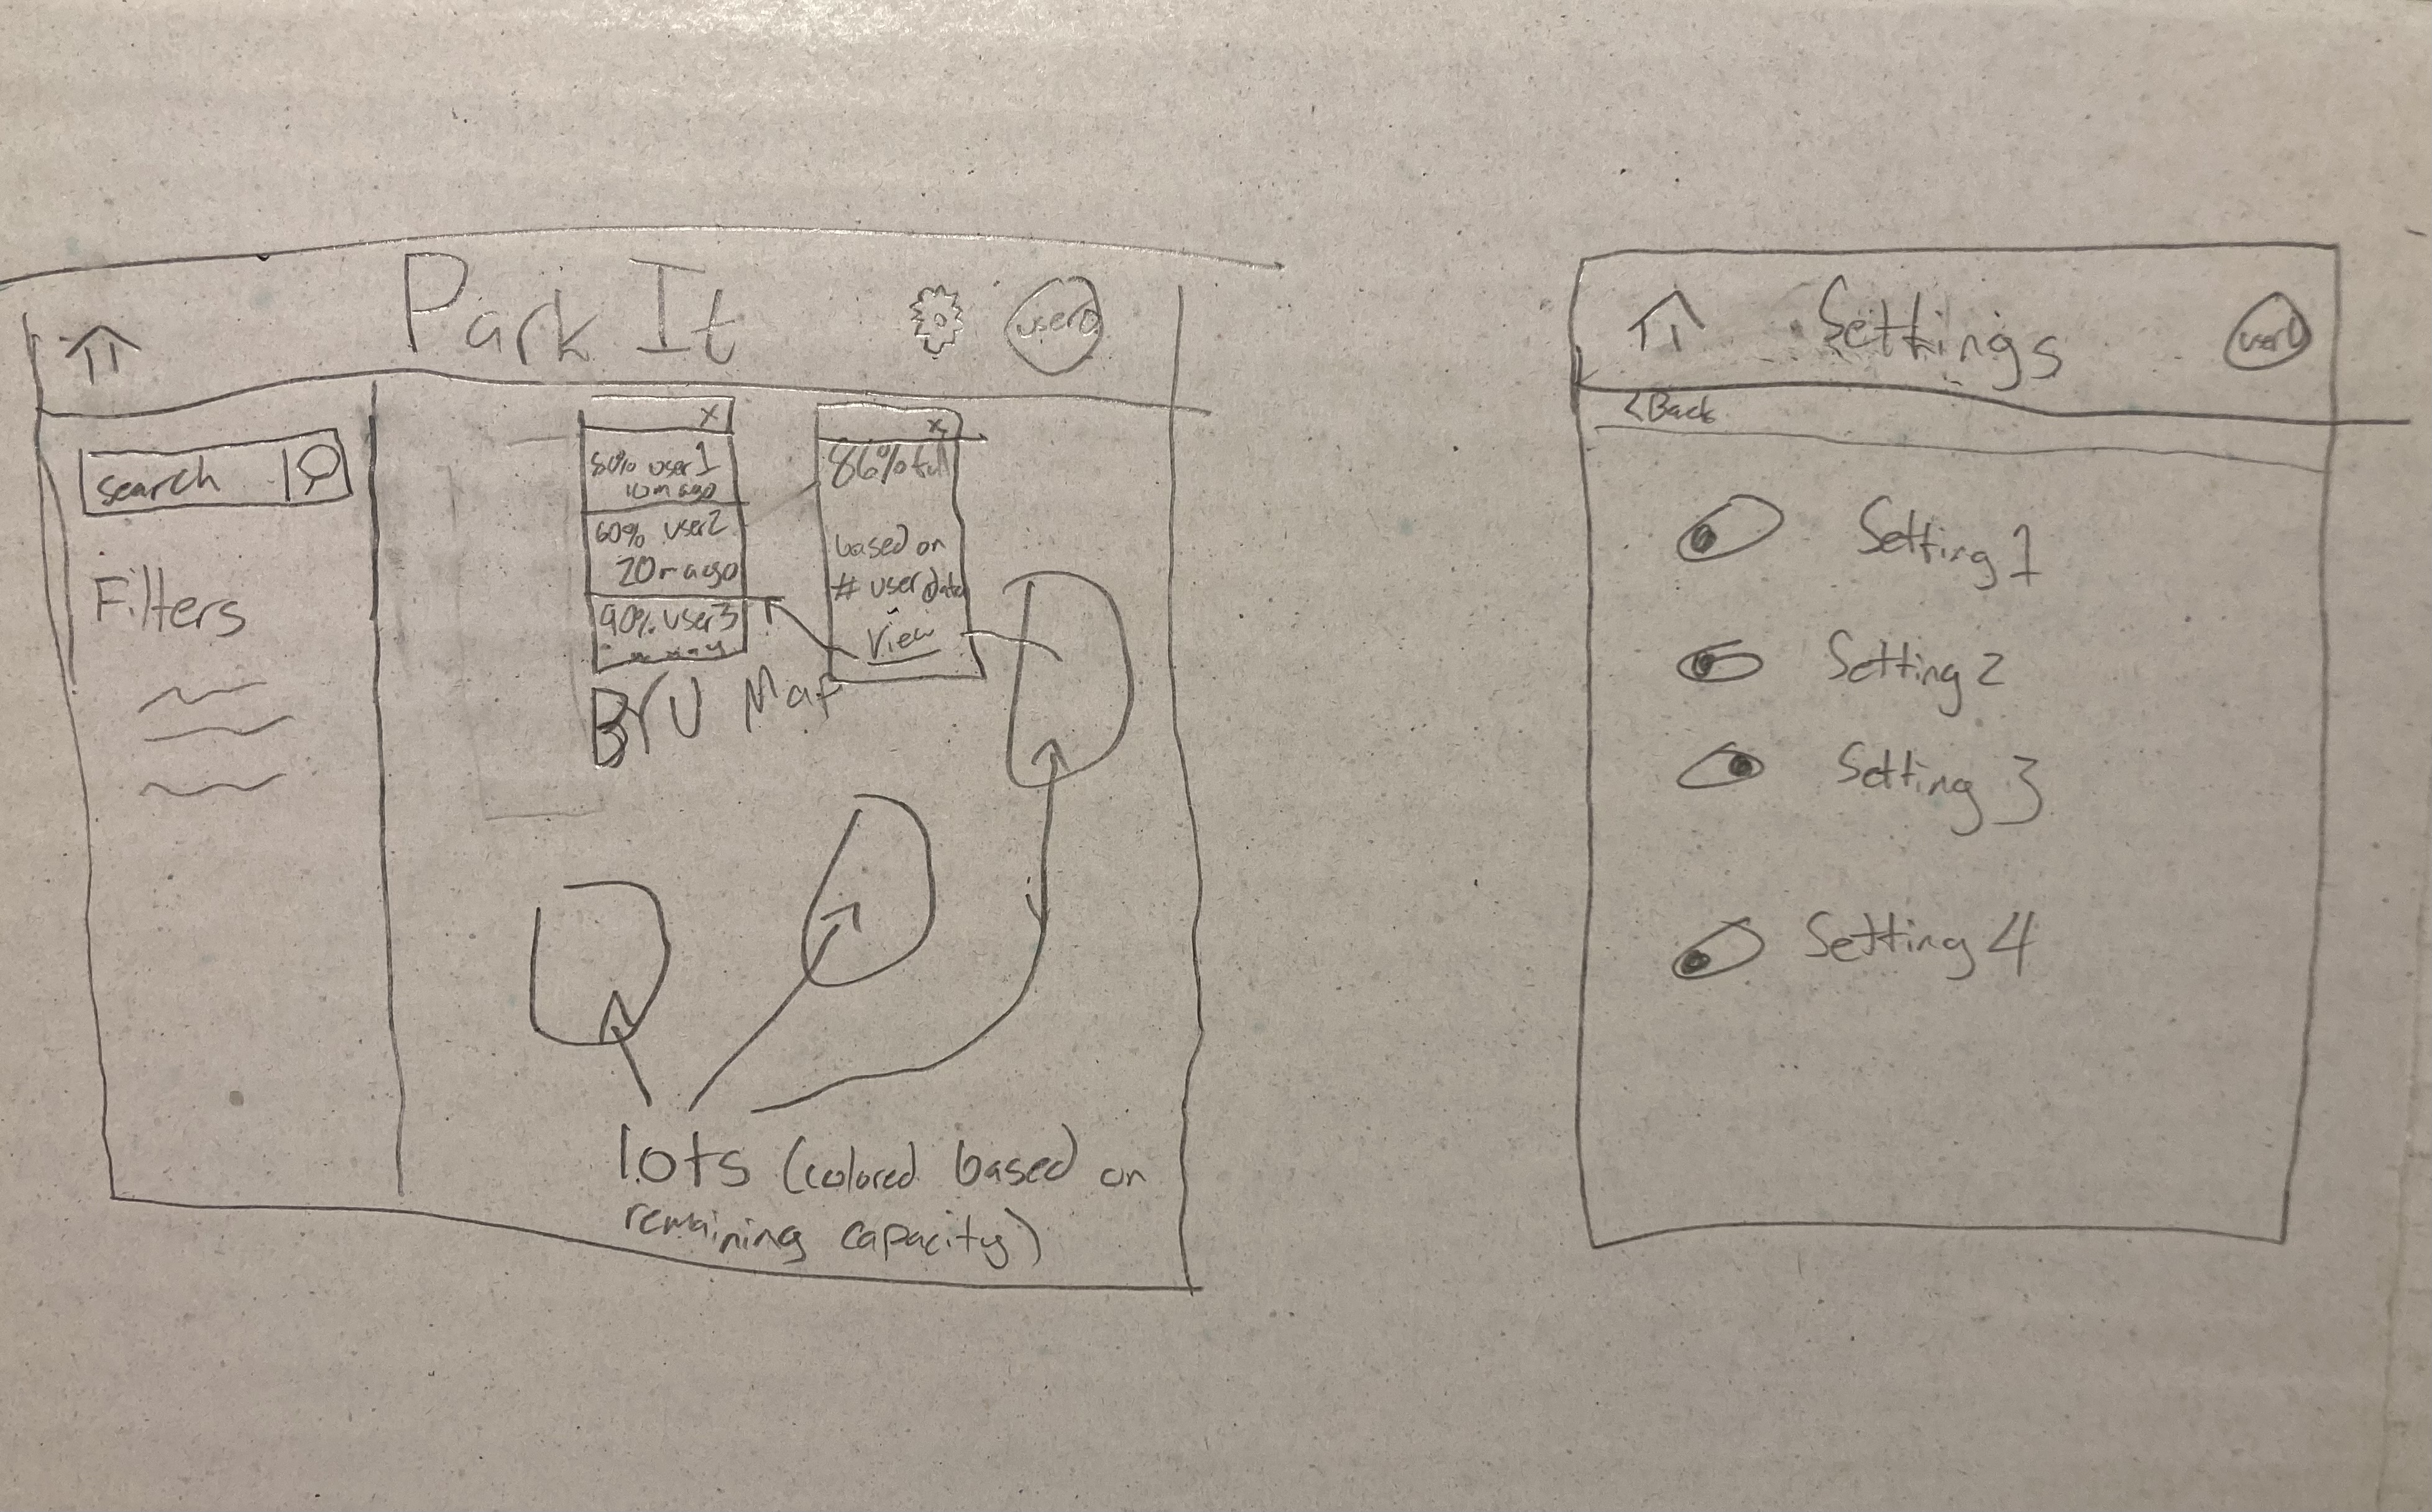 Park It
user
search
Filters
x
80% user1
10m ago
60% user2
20m ago
90% user3
x
86% full
based on
# user data
View
BYU Map
lots (colored based on
remaining capacity)
Settings
user
<Back
Setting 1
Setting 2
Setting 3
Setting 4